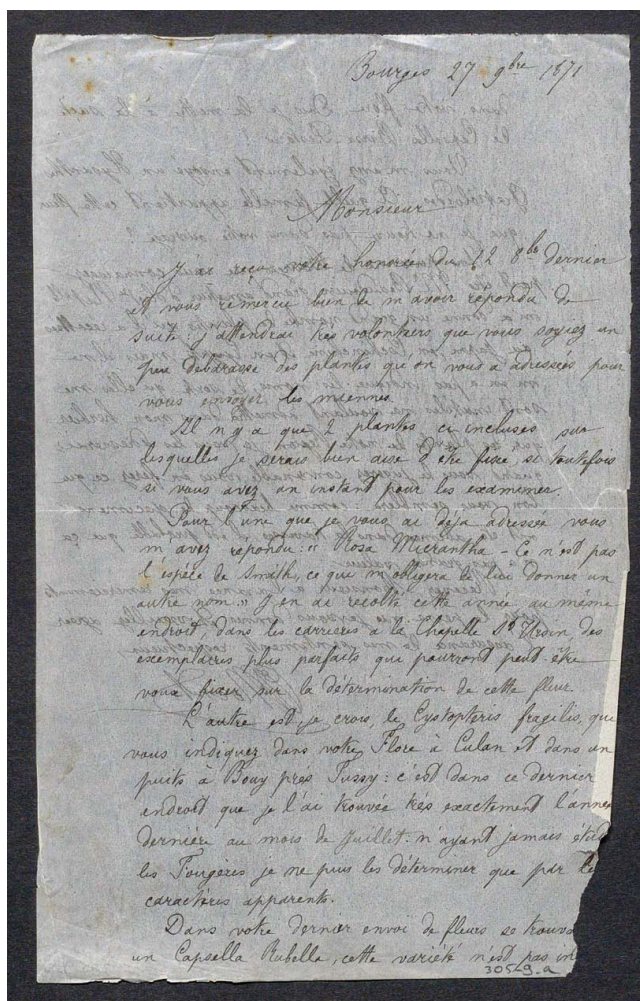 Bourges 27 9bre 1871
Monsieur
J'ai reçu votre honorée du 12 8bre dernier
et vous remercie bien de m'avoir repondu de
suite j'attendrai très volontiers que vous soyiez un
peu débarassé des plantes qu'on vous a adressées pour
vous envoyer les miennes.
Il n'y a que 2 plantes ci incluses sur
lesquelles je serais bien aise d'être fixé, si toutefois
si vous avez un instant pour les examiner.
Pour l'une que je vous ai déja adressée vous
m'avez repondu: "Rosa Micrantha - Ce n'est pas
l'espèce de Smith, ce que m'obligera de lui donner un
autre nom." J'en ai recolté cette année, au même
endroit, dans les carrières à la Chapelle St Ursin, des
exemplaires plus parfaits qui pourront peut être
vous fixer sur la détermination de cette fleur.
L'autre est, je crois, le Cystopteris fragilis, que
vous indiquez dans votre Flore à Culan et dans un
puits à Bouy près Fussy: c'est dans ce dernier
endroit que je l'ai trouvée très exactement l'anné
dernière au mois de Juillet. n'ayant jamais étud
les Fougères je ne puis les déterminer que par le
caractères apparents.
Dans votre dernier envoi de fleurs se trouva
un Capsella Rubella, cette variété n'est pas in
305-9.a